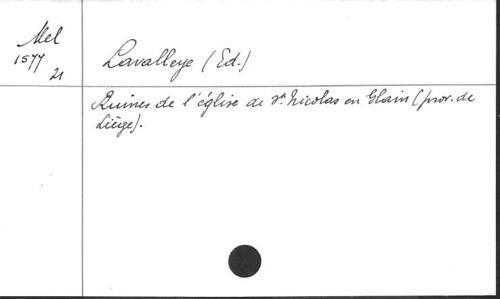 Mel
1577
21
Lavalleye (Ed.)
Ruines de l'église de St Nicolas en Glain (prov. de
Liège).